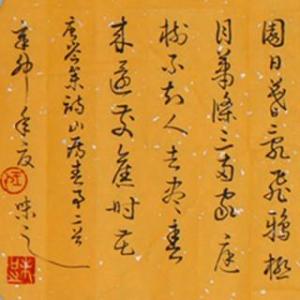 園日暮亂飛鴉極
目蕭條三兩家庭
樹不知人去盡春
來還發舊時花
唐岑參詩山房春事二首
辛卯年夏 味之